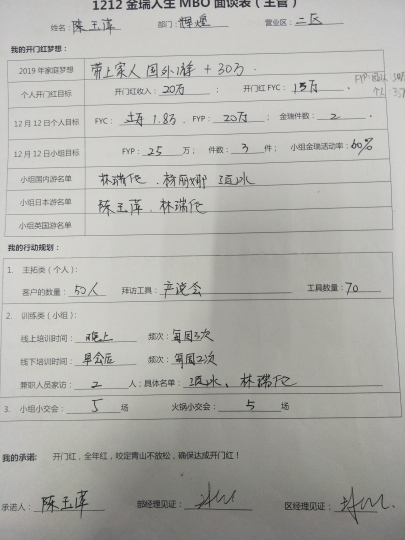 1212 金瑞人生 MBO 面谈表（主管）
姓名：陈玉萍 部门：辉煌 营业区：二区
我的开门红梦想：
2019 年家庭梦想 带上家人国外游 + 30万.
个人开门红目标 开门红收入：20万 ； 开门红 FYC：15万.
12 月 12 日个人目标 FYC：1.8万 ，FYP：20万 ；金瑞件数：2 。
12 月 12 日小组目标 FYP：25 万； 件数：3 件； 小组金瑞活动率：60%
小组国内游名单 林瑞佗 . 杨丽娜
小组日本游名单 陈玉萍 . 林瑞佗
小组英国游名单
我的行动规划：
1. 主拓类（个人）：
客户的数量：50人 拜访工具：产说会 工具数量：70
2. 训练类（小组）：
线上培训时间：晚上 频次：每周3次
线下培训时间：早会后 频次：每周2次
兼职人员家访：2 人；具体名单：林瑞佗
3. 小组小交会：5 场 火锅小交会：5 场
我的承诺： 开门红，全年红，咬定青山不放松，确保达成开门红！
承诺人：陈玉萍 部经理见证： 区经理见证：